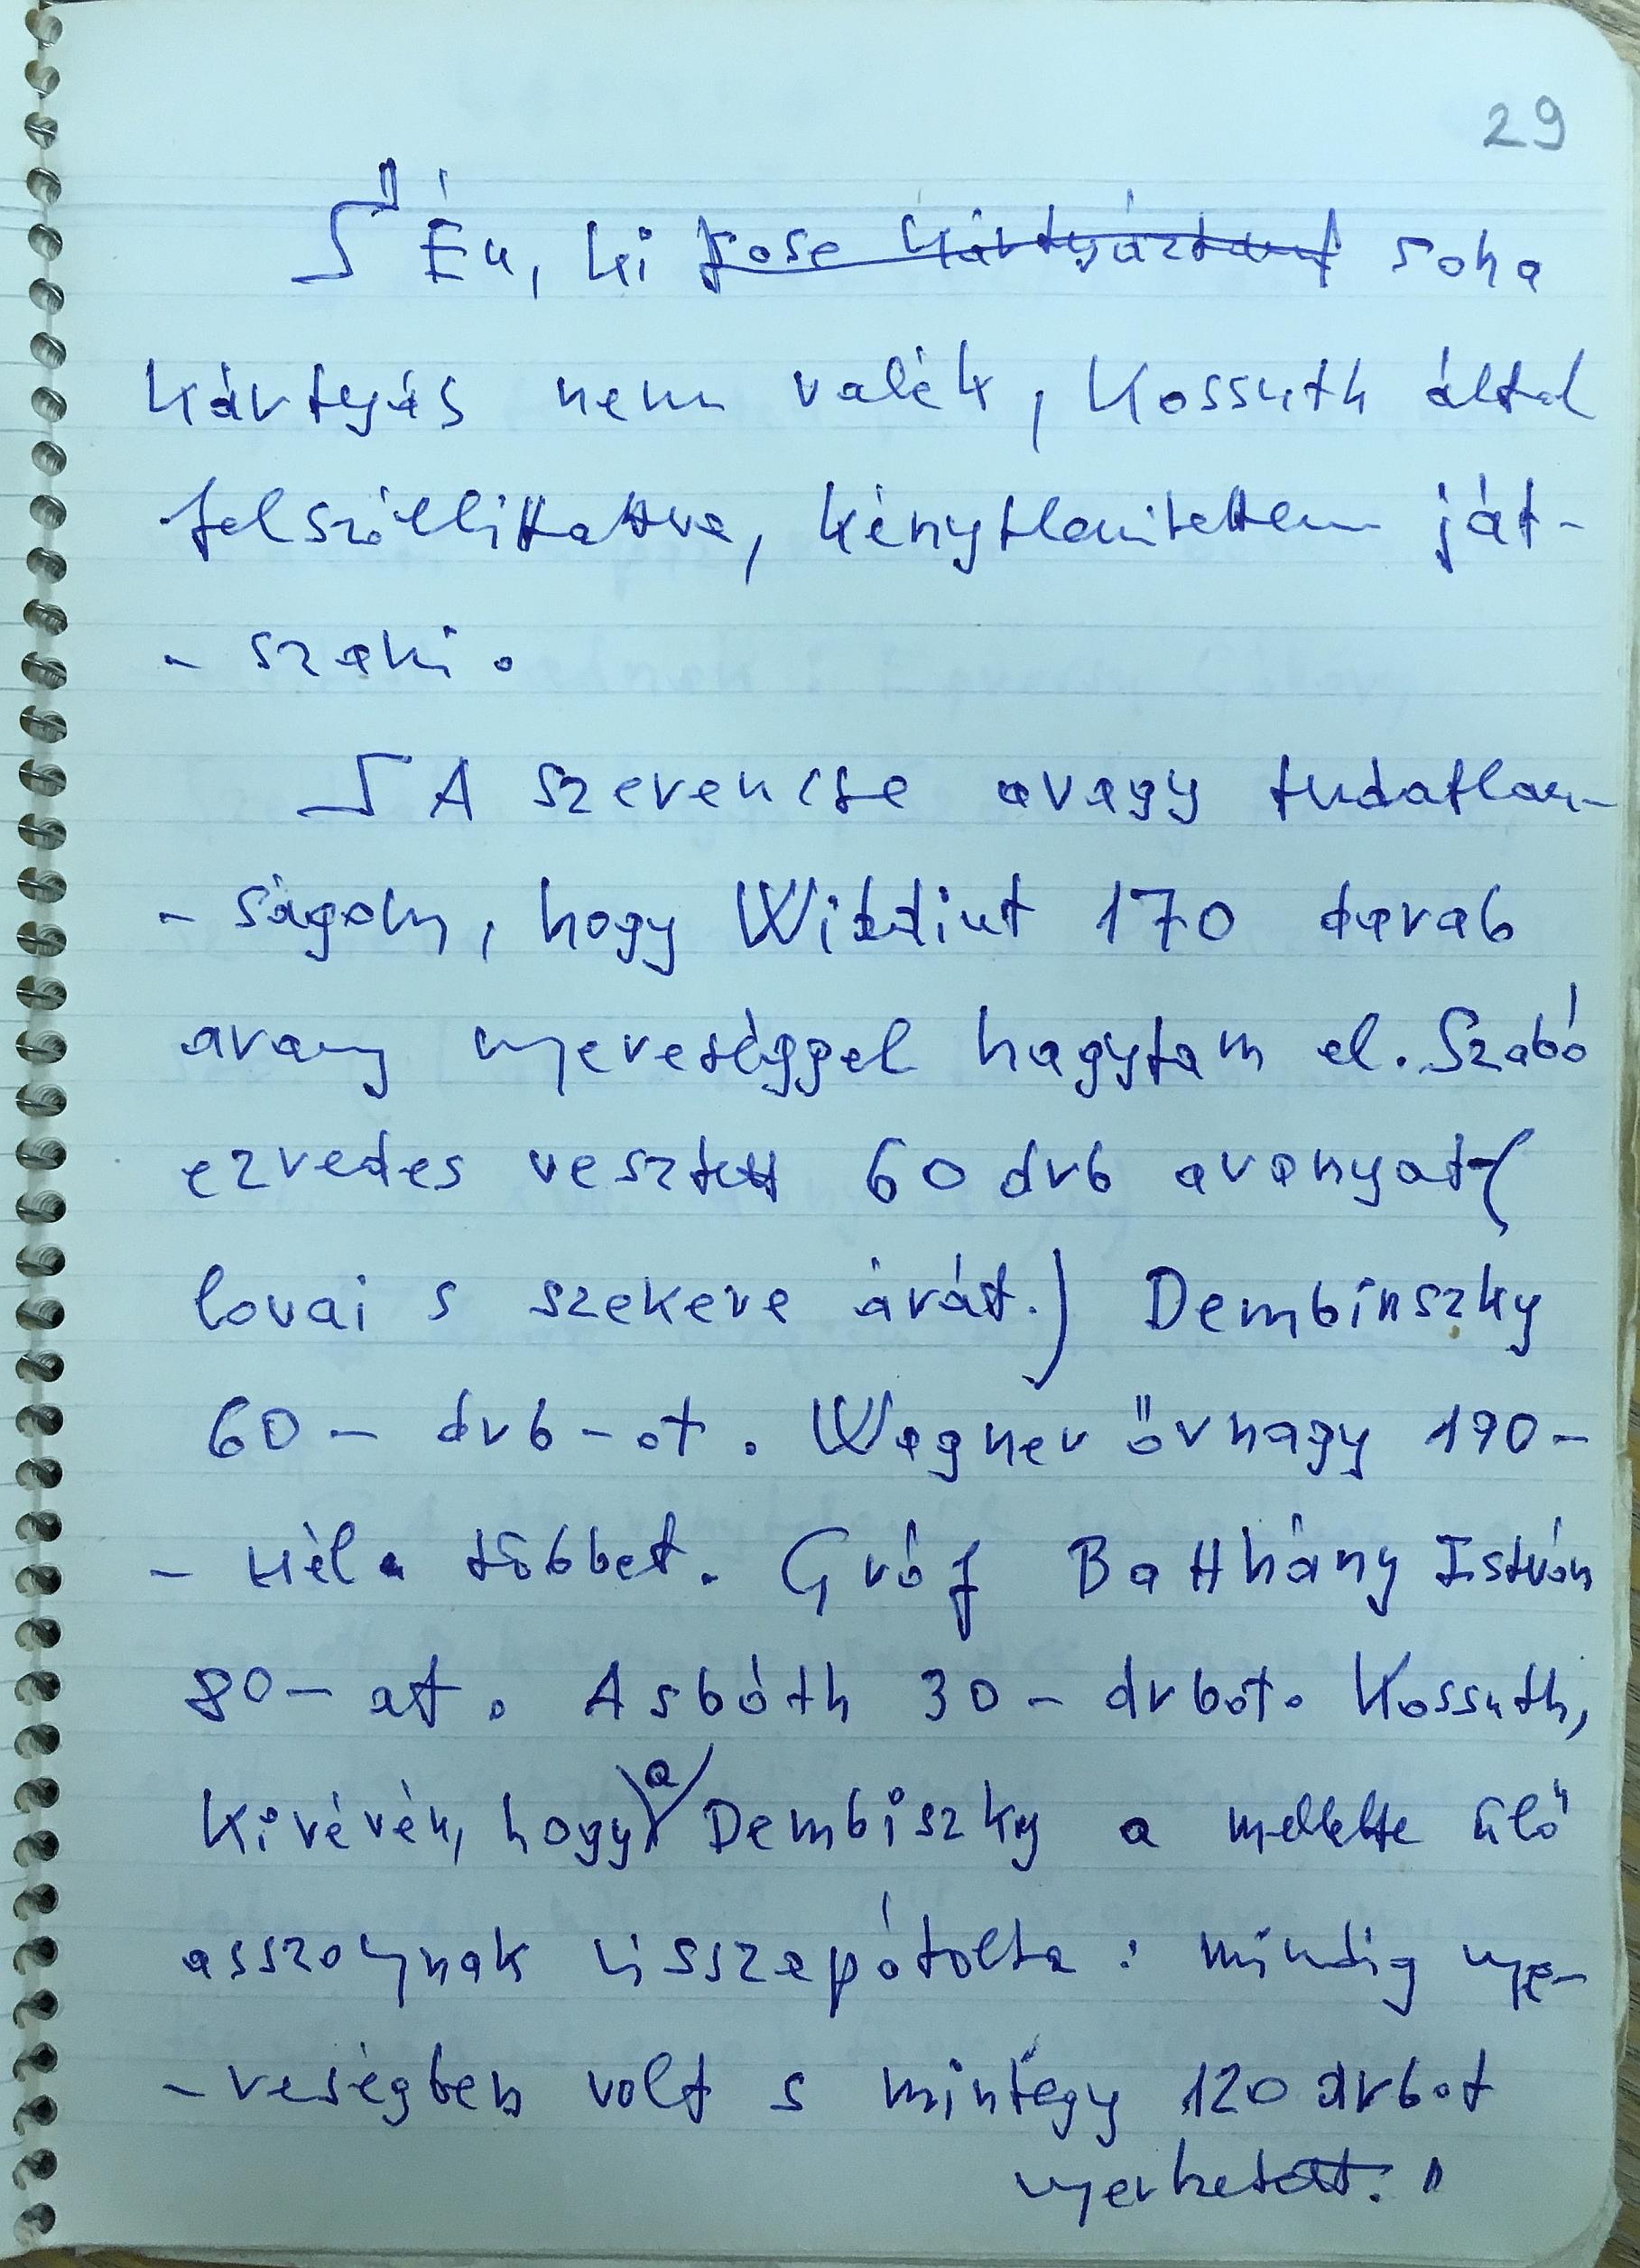 29
" Én, ki sose kártyáztam soha
kártyás nem valék, Kossuth által
felszóllíttattva, kénytleníttettem ját-
- szani.
A szerencse avagy tudatlan-
- ságom, hogy Widdint 170 darab
arany nyereséggel hagytam el. Szabó
ezredes vesztett 60 drb aranyat (
lovai s szekere árát.) Dembinszky
60 - drb-ot. Wagner őrnagy 190-
- nél többet. Gróf Batthány István
80 - at. Asbóth 30 - drbot. Kossuth,
kivévén, hogy a Dembiszky a mellette ülő
asszonynak visszapótolta : mindig nye-
- reségben volt s mintegy 120 drbot
nyerhetett. "